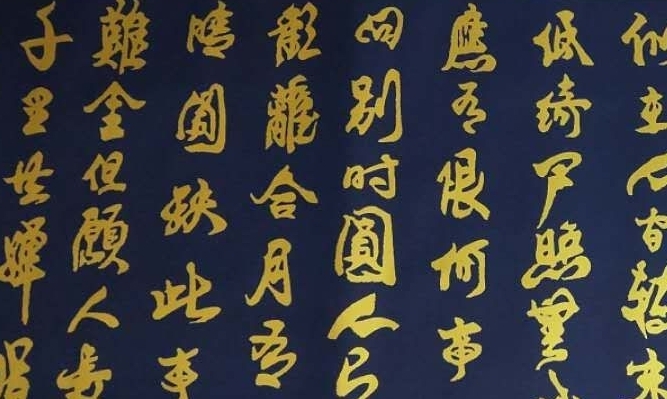 似在人間轉朱
低綺戶照無
應有恨何事
向別时圓人有
歡離合月有
晴圓缺此事
難全但願人長
千里共嬋娟